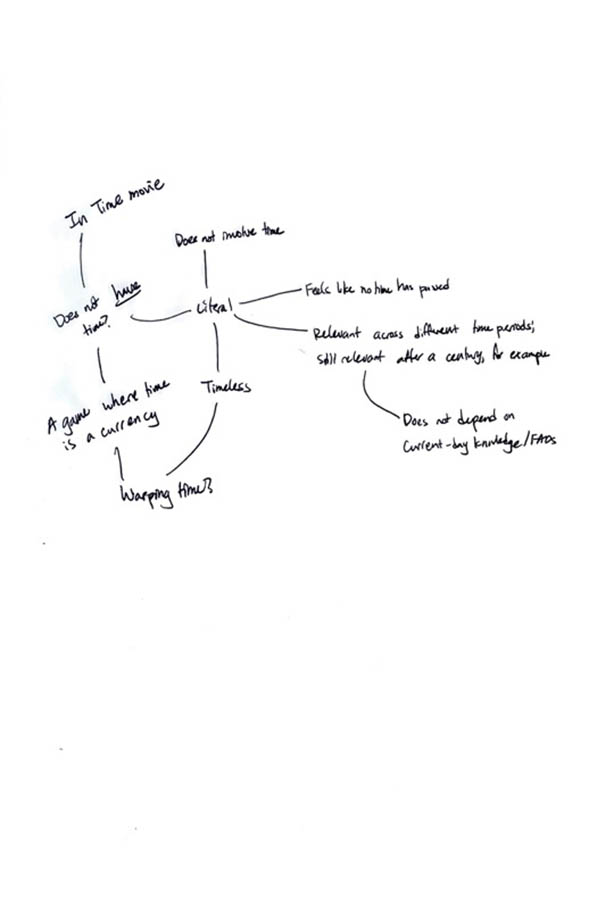 In Time movie
Does not involve time
Does not have
time?
Literal
Feels like no time has passed
Relevant across different time periods;
still relevant after a century, for example
A game where time
is a currency
Timeless
Does not depend on
current-day knowledge/FADs
Warping time?